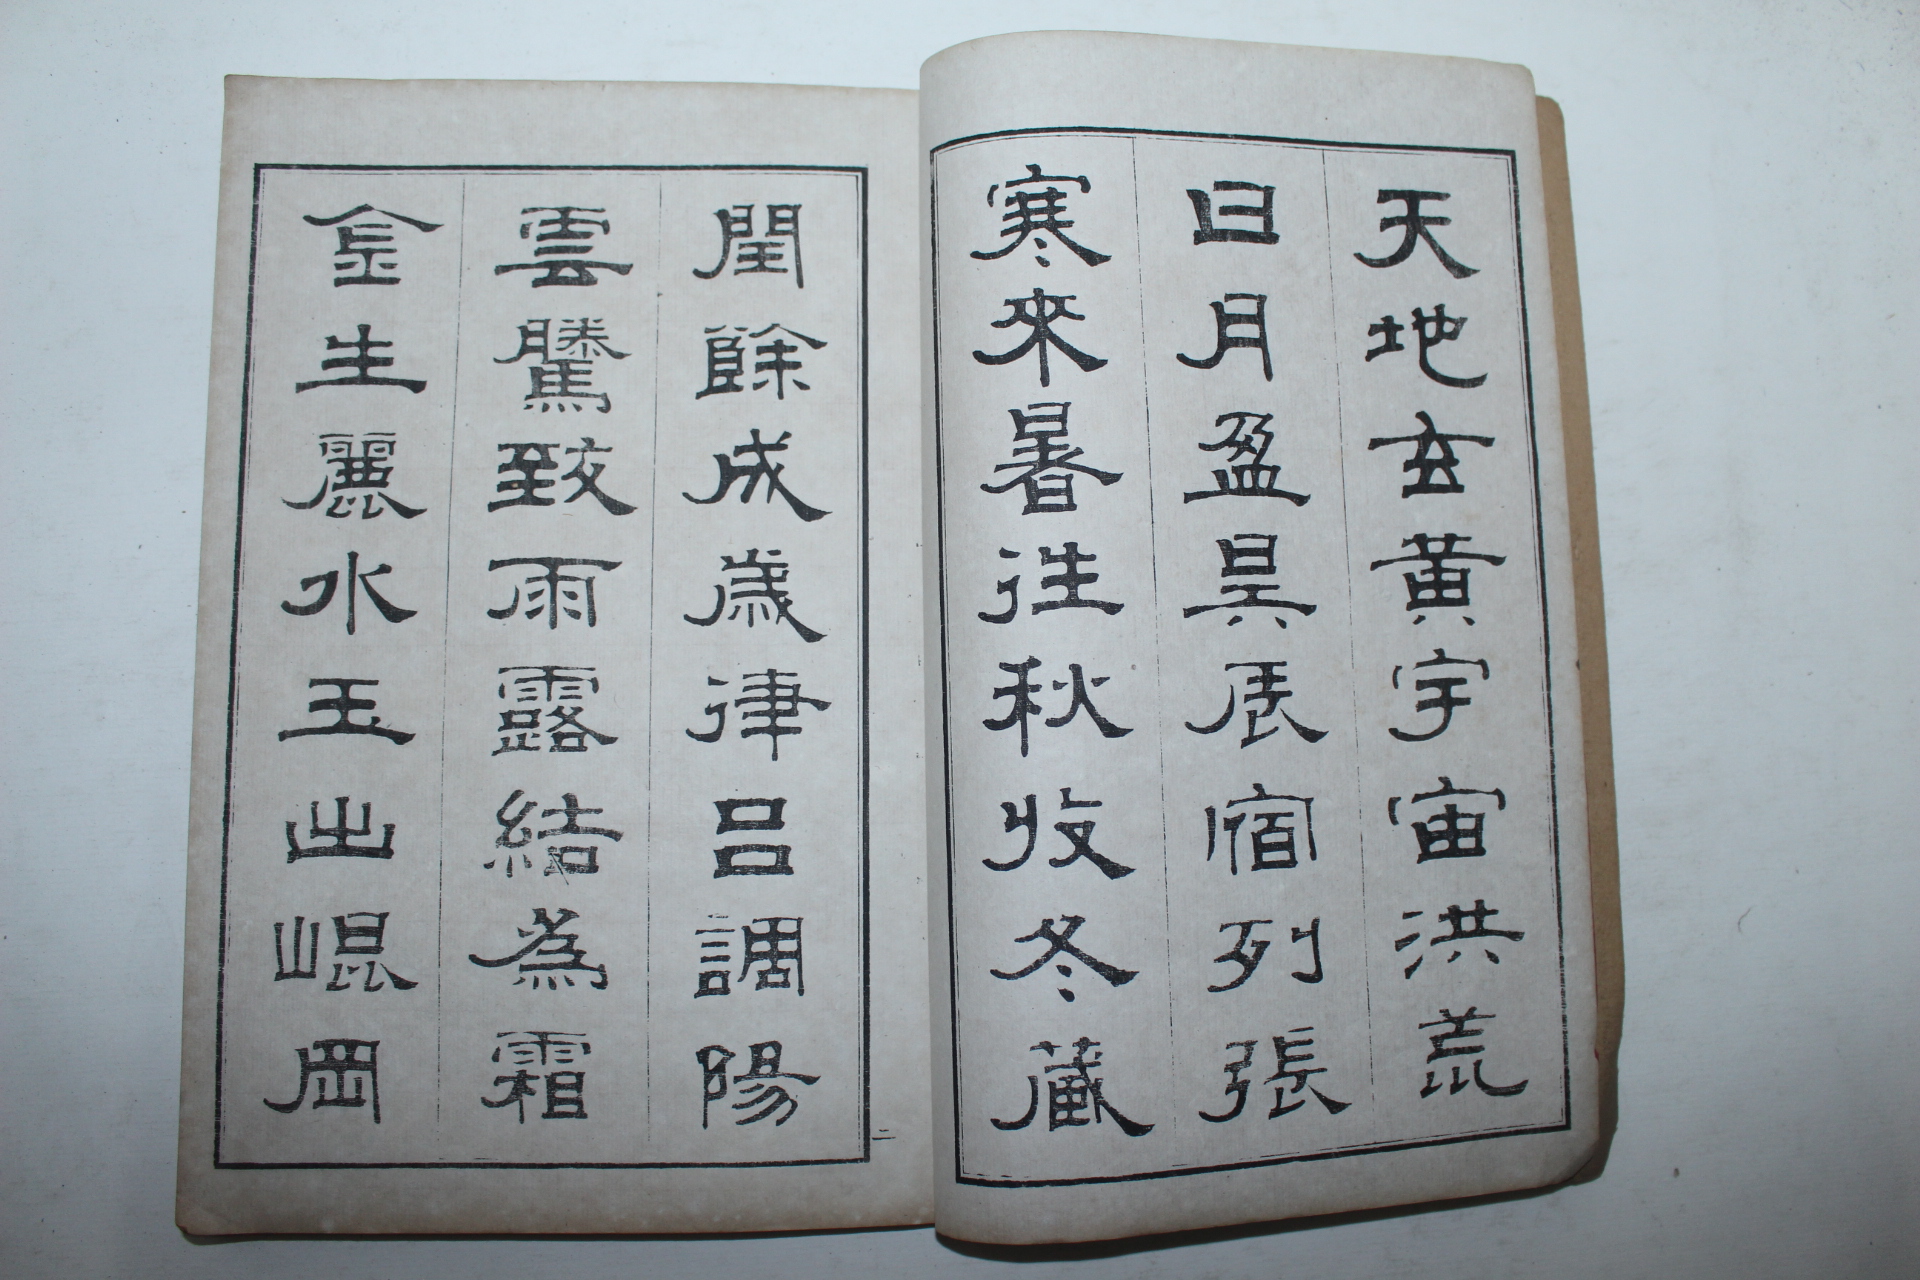 天地玄黃宇宙洪荒
日月盈昃辰宿列張
寒來暑往秋收冬藏
閏餘成歲律呂調陽
雲騰致雨露結為霜
金生麗水玉出崐岡
二